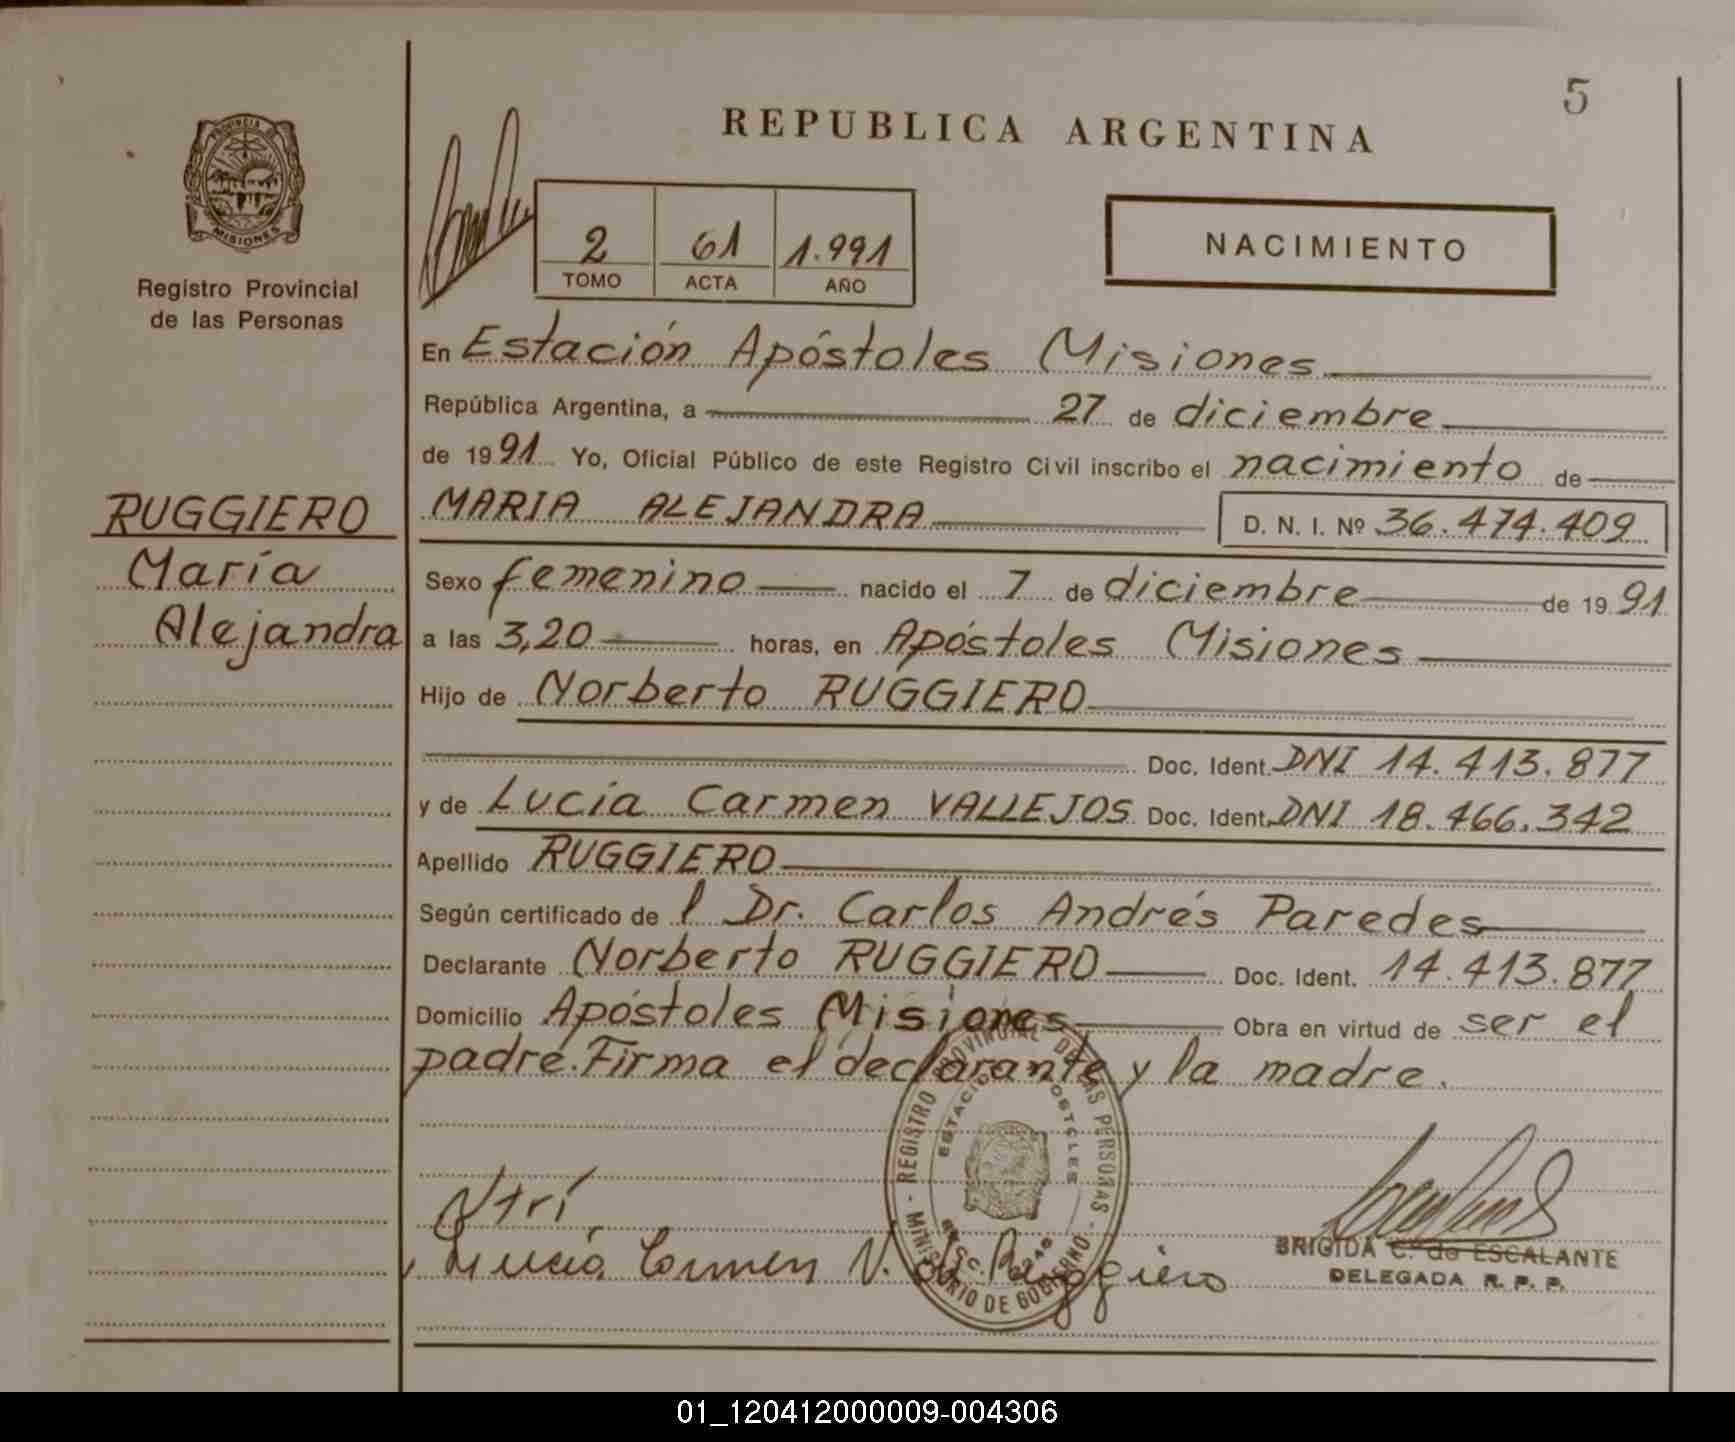 5
REPUBLICA ARGENTINA
PROVINCIA DE
MISIONES
Registro Provincial
de las Personas
2 61 1.991
TOMO ACTA AÑO
NACIMIENTO
En Estación Apóstoles Misiones
República Argentina, a 27 de diciembre
de 1991 Yo, Oficial Público de este Registro Civil inscribo el nacimiento de
RUGGIERO
María
Alejandra
MARIA ALEJANDRA D. N. I. Nº 36.474.409
Sexo femenino nacido el 7 de diciembre de 1991
a las 3,20 horas, en Apóstoles Misiones
Hijo de Norberto RUGGIERO
Doc. Ident. DNI 14.413.877
y de Lucía Carmen VALLEJOS Doc. Ident. DNI 18.466.342
Apellido RUGGIERO
Según certificado de l Dr. Carlos Andrés Paredes
Declarante Norberto RUGGIERO Doc. Ident. 14.413.877
Domicilio Apóstoles Misiones Obra en virtud de ser el
padre. Firma el declarante y la madre.
REGISTRO PROVINCIAL DE LAS PERSONAS - MINISTERIO DE GOBIERNO -
Lucía Carmen V. de Ruggiero
BRIGIDA C. de ESCALANTE
DELEGADA R. P. P.
01_120412000009-004306